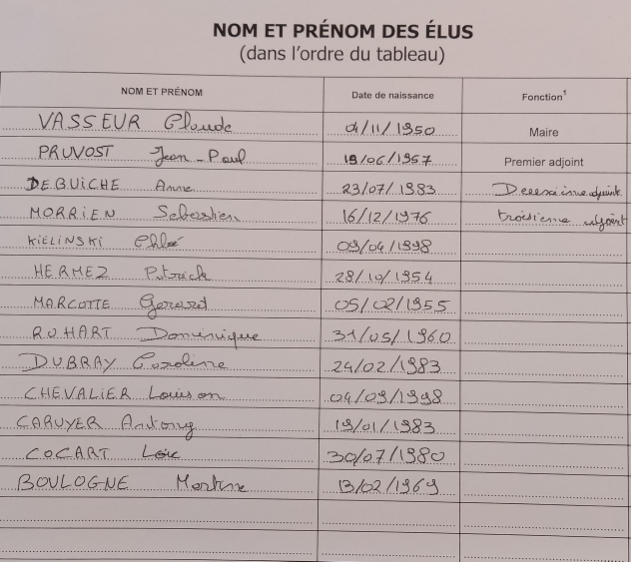 NOM ET PRÉNOM DES ÉLUS
(dans l'ordre du tableau)
NOM ET PRÉNOM Date de naissance Fonction¹
VASSEUR Claude 01/11/1950 Maire
PRUVOST Jean-Paul 19/06/1957 Premier adjoint
DEBUICHE Anne 23/07/1983 Deuxième adjoint
MORRIEN Sébastien 16/12/1976 troisième adjoint
KIELINSKI Chloé 09/04/1998
HERMEZ Patrick 28/10/1954
MARCOTTE Gerard 05/02/1955
RUHART Dominique 31/05/1960
DUBRAY Caroline 24/02/1983
CHEVALIER Louison 04/09/1998
CARUYER Antony 19/01/1983
COCART Loïc 30/07/1980
BOULOGNE Martine 13/02/1969